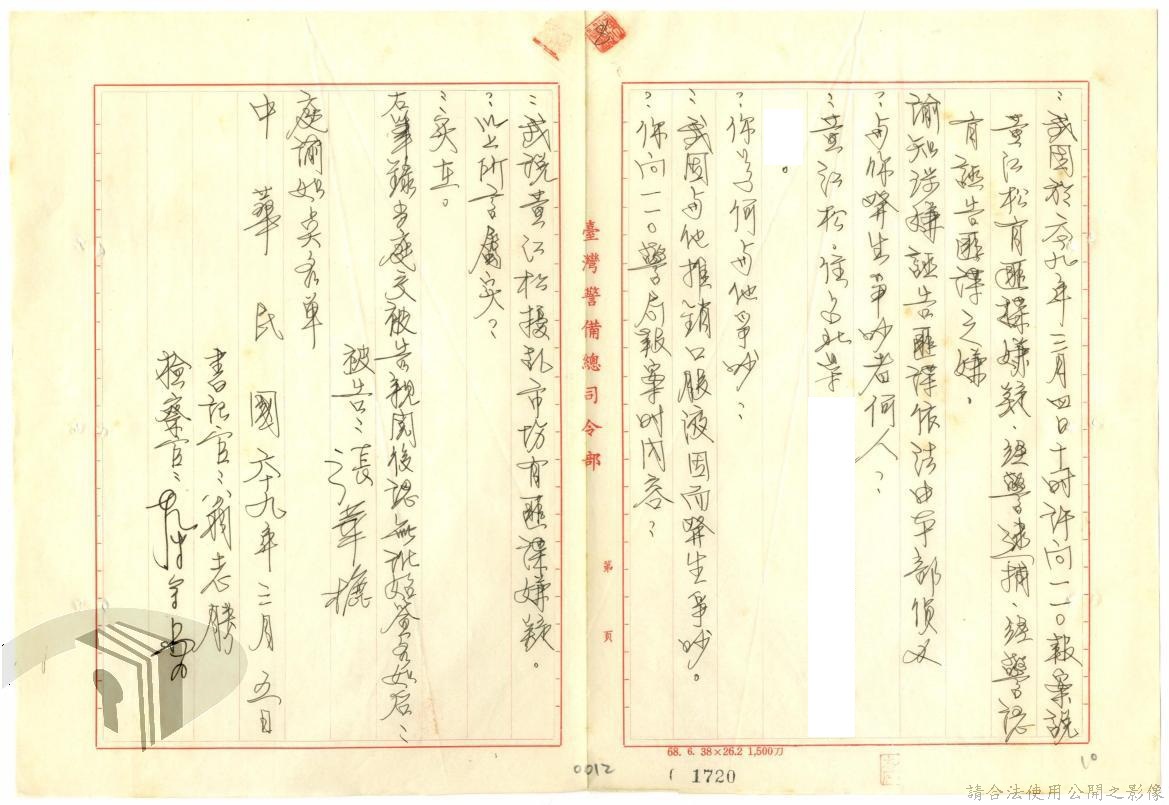 ：我因於六九年三月四日十时许向一一〇報案說
黃江松有匪諜嫌疑，經警逮捕，經警認
有誣告匪諜之嫌，
諭知涉嫌誣告匪諜依法由本部偵办
？与你發生爭吵者何人？
：黃江松，住台北市
。
？你為何与他爭吵？
：我因与他推銷口服液因而發生爭吵。
？你向一一〇警局報案时內容？
：我說黃江松擾乱市場有匪諜嫌疑。
？以上所言屬实？
：实在。
右筆錄当庭交被告親閱後認無訛始簽名如后：
被告：張華
庭諭如点名单
中華民國六十九年三月五日
書記官：翁志勝
檢察官：
臺灣警備總司令部
第 頁
68. 6. 38×26.2 1,500刀
0012
1720
10
請合法使用公開之影像